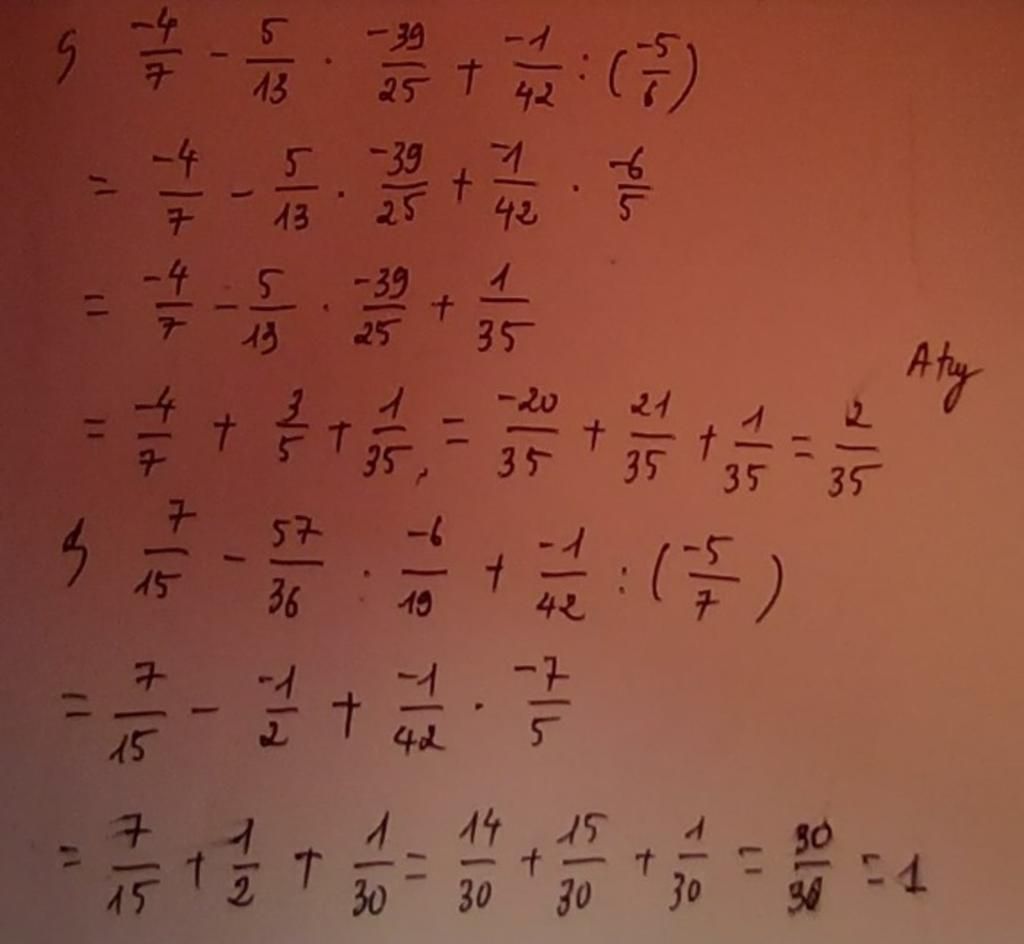 -4/7 - 5/13 . -39/25 + -1/42 : (-5/6)
= -4/7 - 5/13 . -39/25 + -1/42 . -6/5
= -4/7 - 5/13 . -39/25 + 1/35
= -4/7 + 3/5 + 1/35, = -20/35 + 21/35 + 1/35 = 2/35
7/15 - 57/36 . -6/19 + -1/42 : (-5/7)
= 7/15 - -1/2 + -1/42 . -7/5
= 7/15 + 1/2 + 1/30 = 14/30 + 15/30 + 1/30 = 30/30 = 1